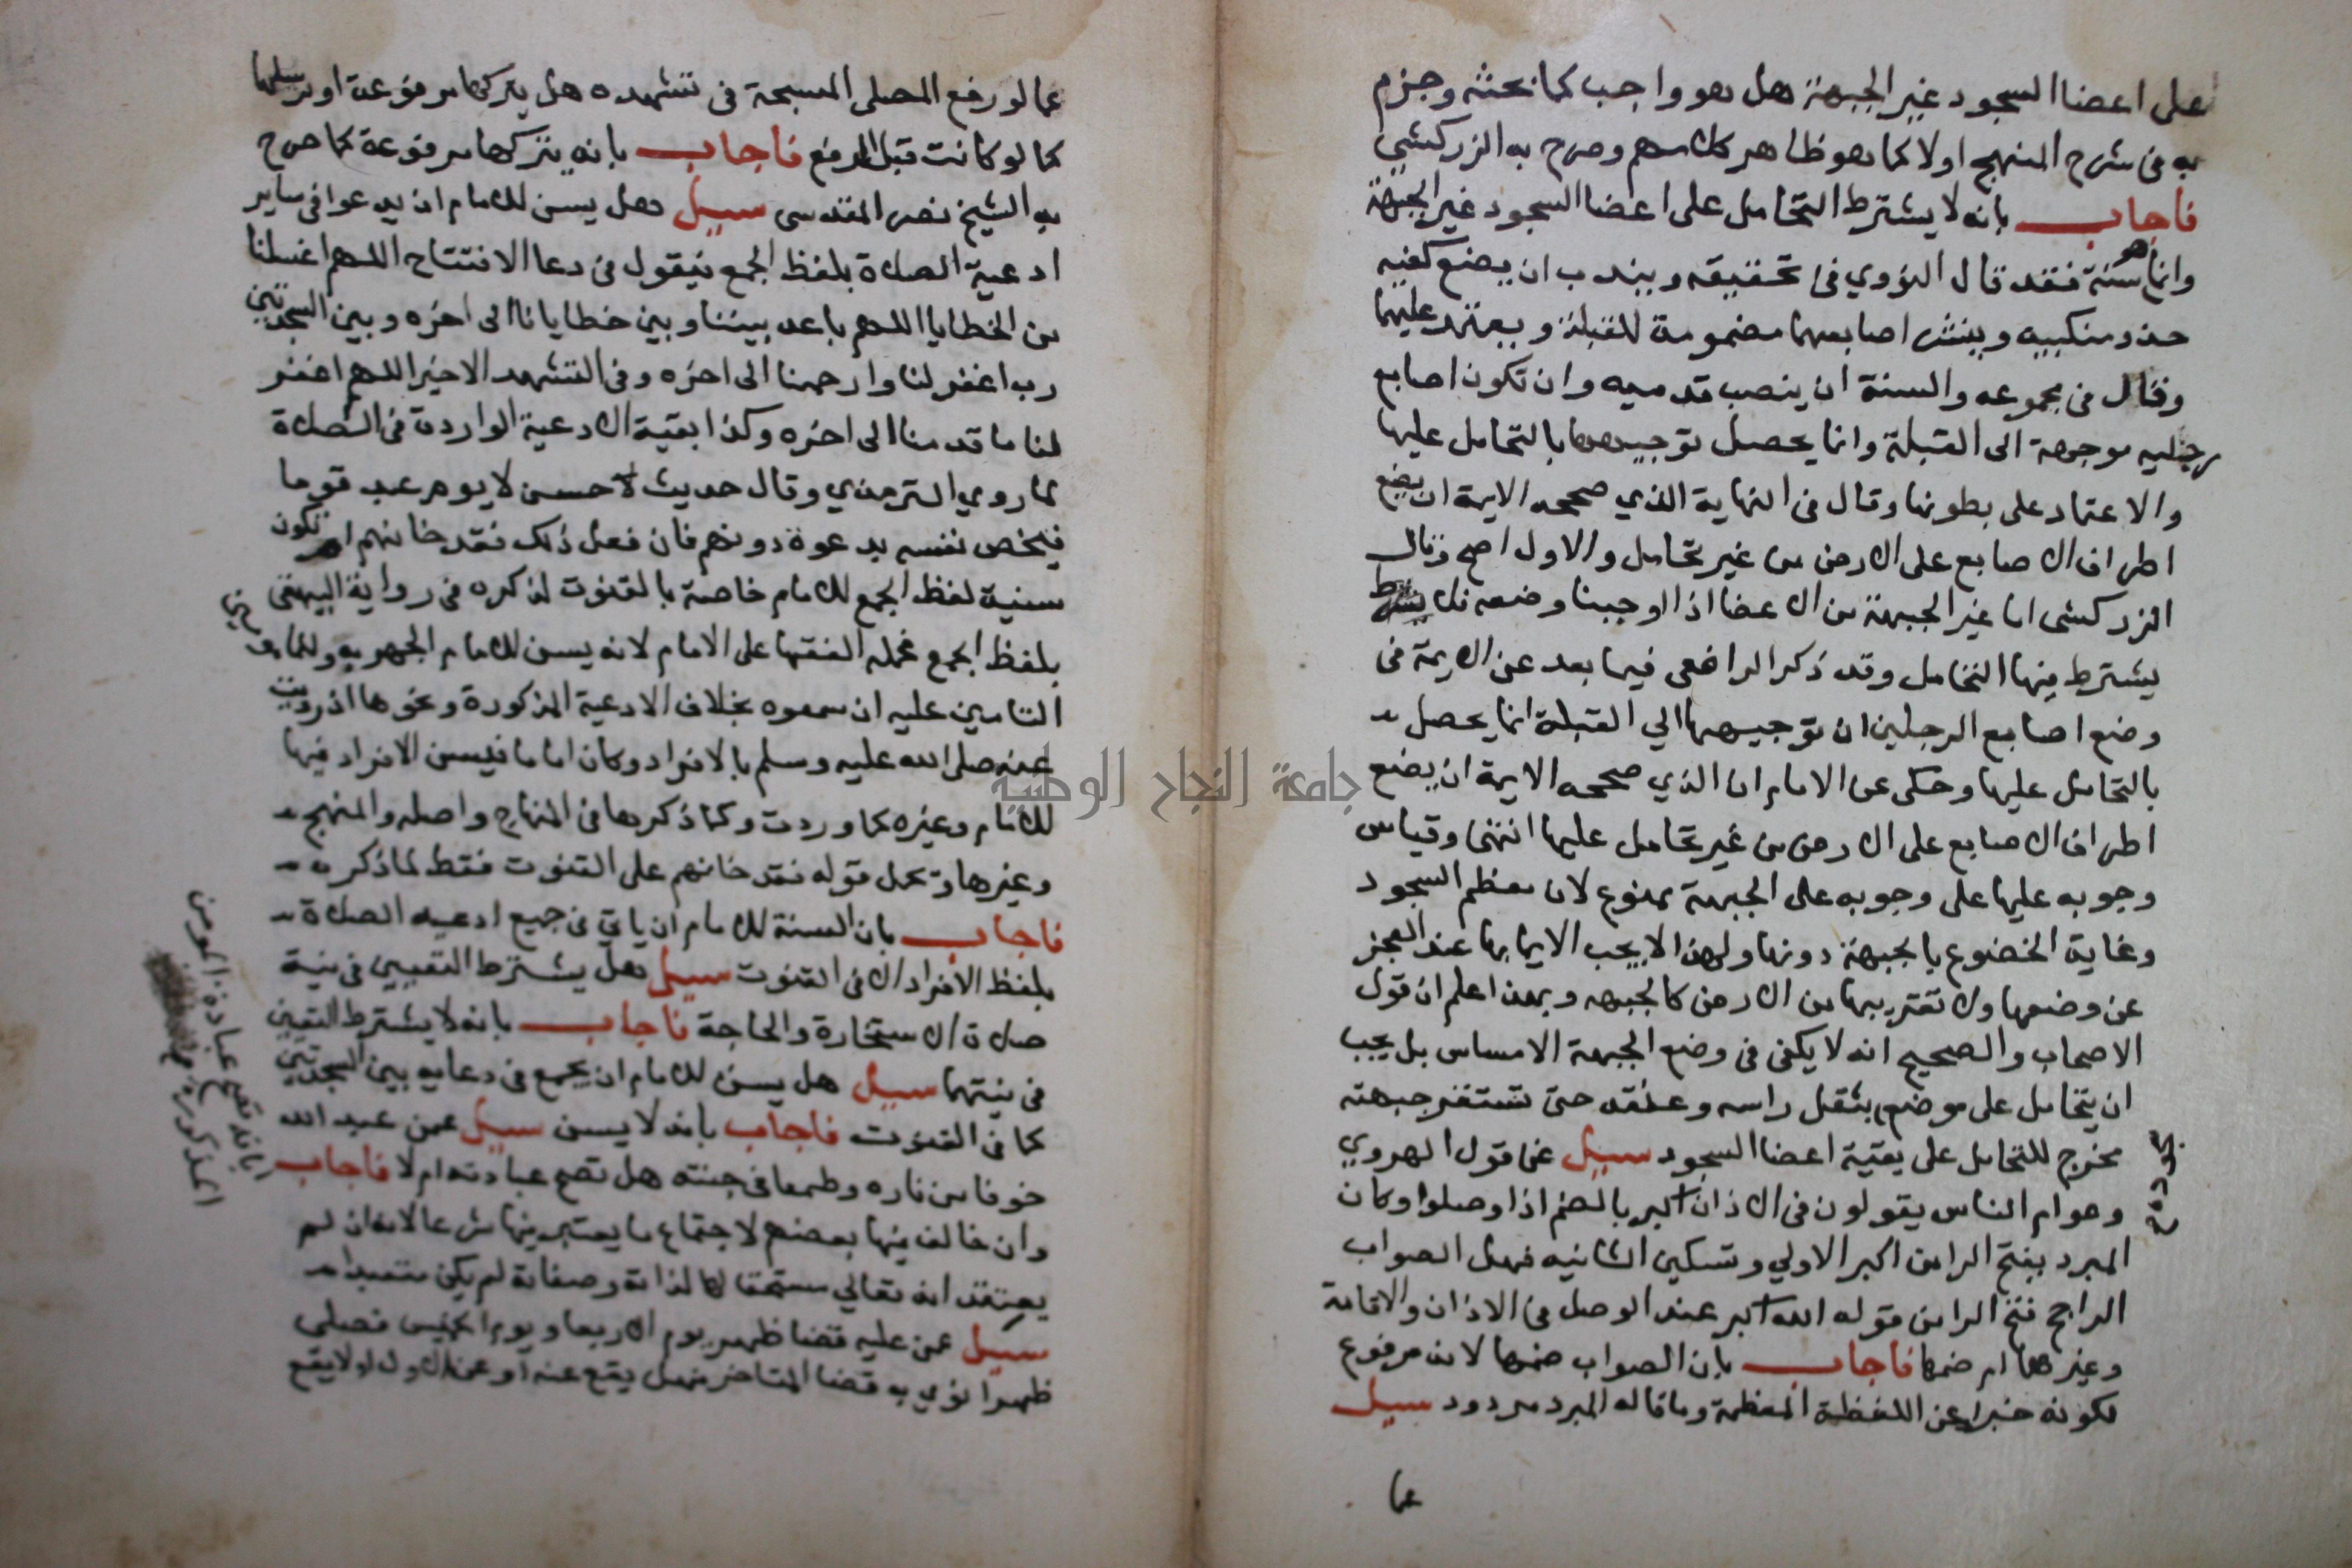 على اعضا السجود غير الجبهة هل هو واجب كما بحثه وجزم
به فى شرح المنهج اولا كما هو ظاهر كلامهم وصرح به الزركشي
فاجاب بانه لا يشترط التحامل على اعضا السجود غير الجبهة
وانما هو سنة فقد قال النووي فى تحقيقه ويندب ان يضع كفيه
حذو منكبيه وينشر اصابعهما مضمومة للقبلة ويعتمد عليهما
وقال فى مجموعه والسنة ان ينصب قدميه وان تكون اصابع
رجليه موجهة الى القبلة وانما يحصل توجيهها بالتحامل عليها
والاعتماد على بطونها وقال فى النهاية الذي صححه الايمة ان يضع
اطراف الاصابع على الارض من غير تحامل والاول اصح وقال
الزركشى اما غير الجبهة من الاعضا اذا اوجبنا وضعه فلا
يشترط فيها التحامل وقد ذكر الرافعى فيما بعد عن الايمة فى
وضع اصابع الرجلين ان توجيهها الي القبلة انما يحصل
بالتحامل عليها وحكى عن الامام ان الذي صححه الايمة ان يضع
اطراف الاصابع على الارض من غير تحامل عليها انتهى وقياس
وجوبه عليها على وجوبه على الجبهة ممنوع لان معظم السجود
وغاية الخضوع بالجبهة دونها ولهذا لا يجب الايما بها عند العجز
عن وضعها ولا تقريبها من الارض كالجبهه وبهذا علم ان قول
الاصحاب والصحيح انه لا يكفى فى وضع الجبهة الامساس بل يجب
ان يتحامل على موضع بثقل راسه وعنقه حتى تستقر جبهته
مخرج للتحامل على بقية اعضا السجود سيل عن قول الهروي
وعوام الناس يقولون فى الاذان اكبر بالضم اذا وصلوا وكان
المبرد يفتح الرا من اكبر الاولي وتسكين الثانيه فهل الصواب
الراجح فتح الرا من قوله الله اكبر عند الوصل فى الاذان والاقامة
وغيرهما ام ضمها فاجاب بان الصواب ضمها لانه مرفوع
لكونه خبرا عن اللفظة المعظمة وما قاله المبرد مردود سيل
عما
عما لو رفع المصلى المسبحة فى تشهده هل يتركها مرفوعة او يرسلها
كما لو كانت قبل الرفع فاجاب بانه يتركها مرفوعة كما صرح
به الشيخ نصر المقدسى سيل هل يسن للامام ان يدعوا فى ساير
ادعية الصلاة بلفظ الجمع فيقول فى دعا الافتتاح اللهم اغسلنا
من الخطايا اللهم باعد بيننا وبين خطايانا الى اخره وبين السجدتين
رب اغفر لنا وارحمنا الى اخره وفى التشهد الاخير اللهم اغفر
لنا ما قدمنا الى اخره وكذا بقية الادعية الواردة فى الصلاة
لما روي الترمذي وقال حديث حسن لا يوم عبد قوما
فيخص نفسه بدعوة دونهم فان فعل ذلك فقد خانهم او تكون
سنية لفظ الجمع للامام خاصة بالقنوت لذكره فى رواية البيهقى
بلفظ الجمع فحمله الفقها على الامام لانه يسن للامام الجهر به وللمامومين
التامين عليه ان سمعوه بخلاف الادعية المذكورة ونحوها اذ رويت
عنه صلى الله عليه وسلم بالافراد وكان اماما فيسن الافراد فيها
للامام وغيره كما وردت وكما ذكرها فى المنهاج واصله والمنهج
وغيرها ويحمل قوله فقد خانهم على القنوت فقط لما ذكر
فاجاب بان السنة للامام ان ياتي فى جميع ادعيه الصلاة
بلفظ الافراد الا فى القنوت سيل هل يشترط التعيين فى نية
صلاة الاستخارة والحاجة فاجاب بانه لا يشترط التعيين
فى نيتها سيل هل يسن للامام ان يجمع فى دعايه بين السجدتين
كما فى القنوت فاجاب بانه لا يسن سيل عمن عبد الله
خوفا من ناره وطمعا فى جنته هل تصح عبادته ام لا فاجاب
بانه تصح عبادة المومن
المذكورة
وان خالف فيها بعضهم لاجتماع ما يعتبر فيها شرعا لانه ان لم
يعتقد انه تعالي مستحقا لها لذاته وصفاته لم يكن متعبدا
سيل عمن عليه قضا ظهر يوم الاربعا ويوم الخميس فصلى
ظهرا نوي به قضا المتاخر فهل يقع عنه او عن الاول او لا يقع
جامعة النجاح الوطنية